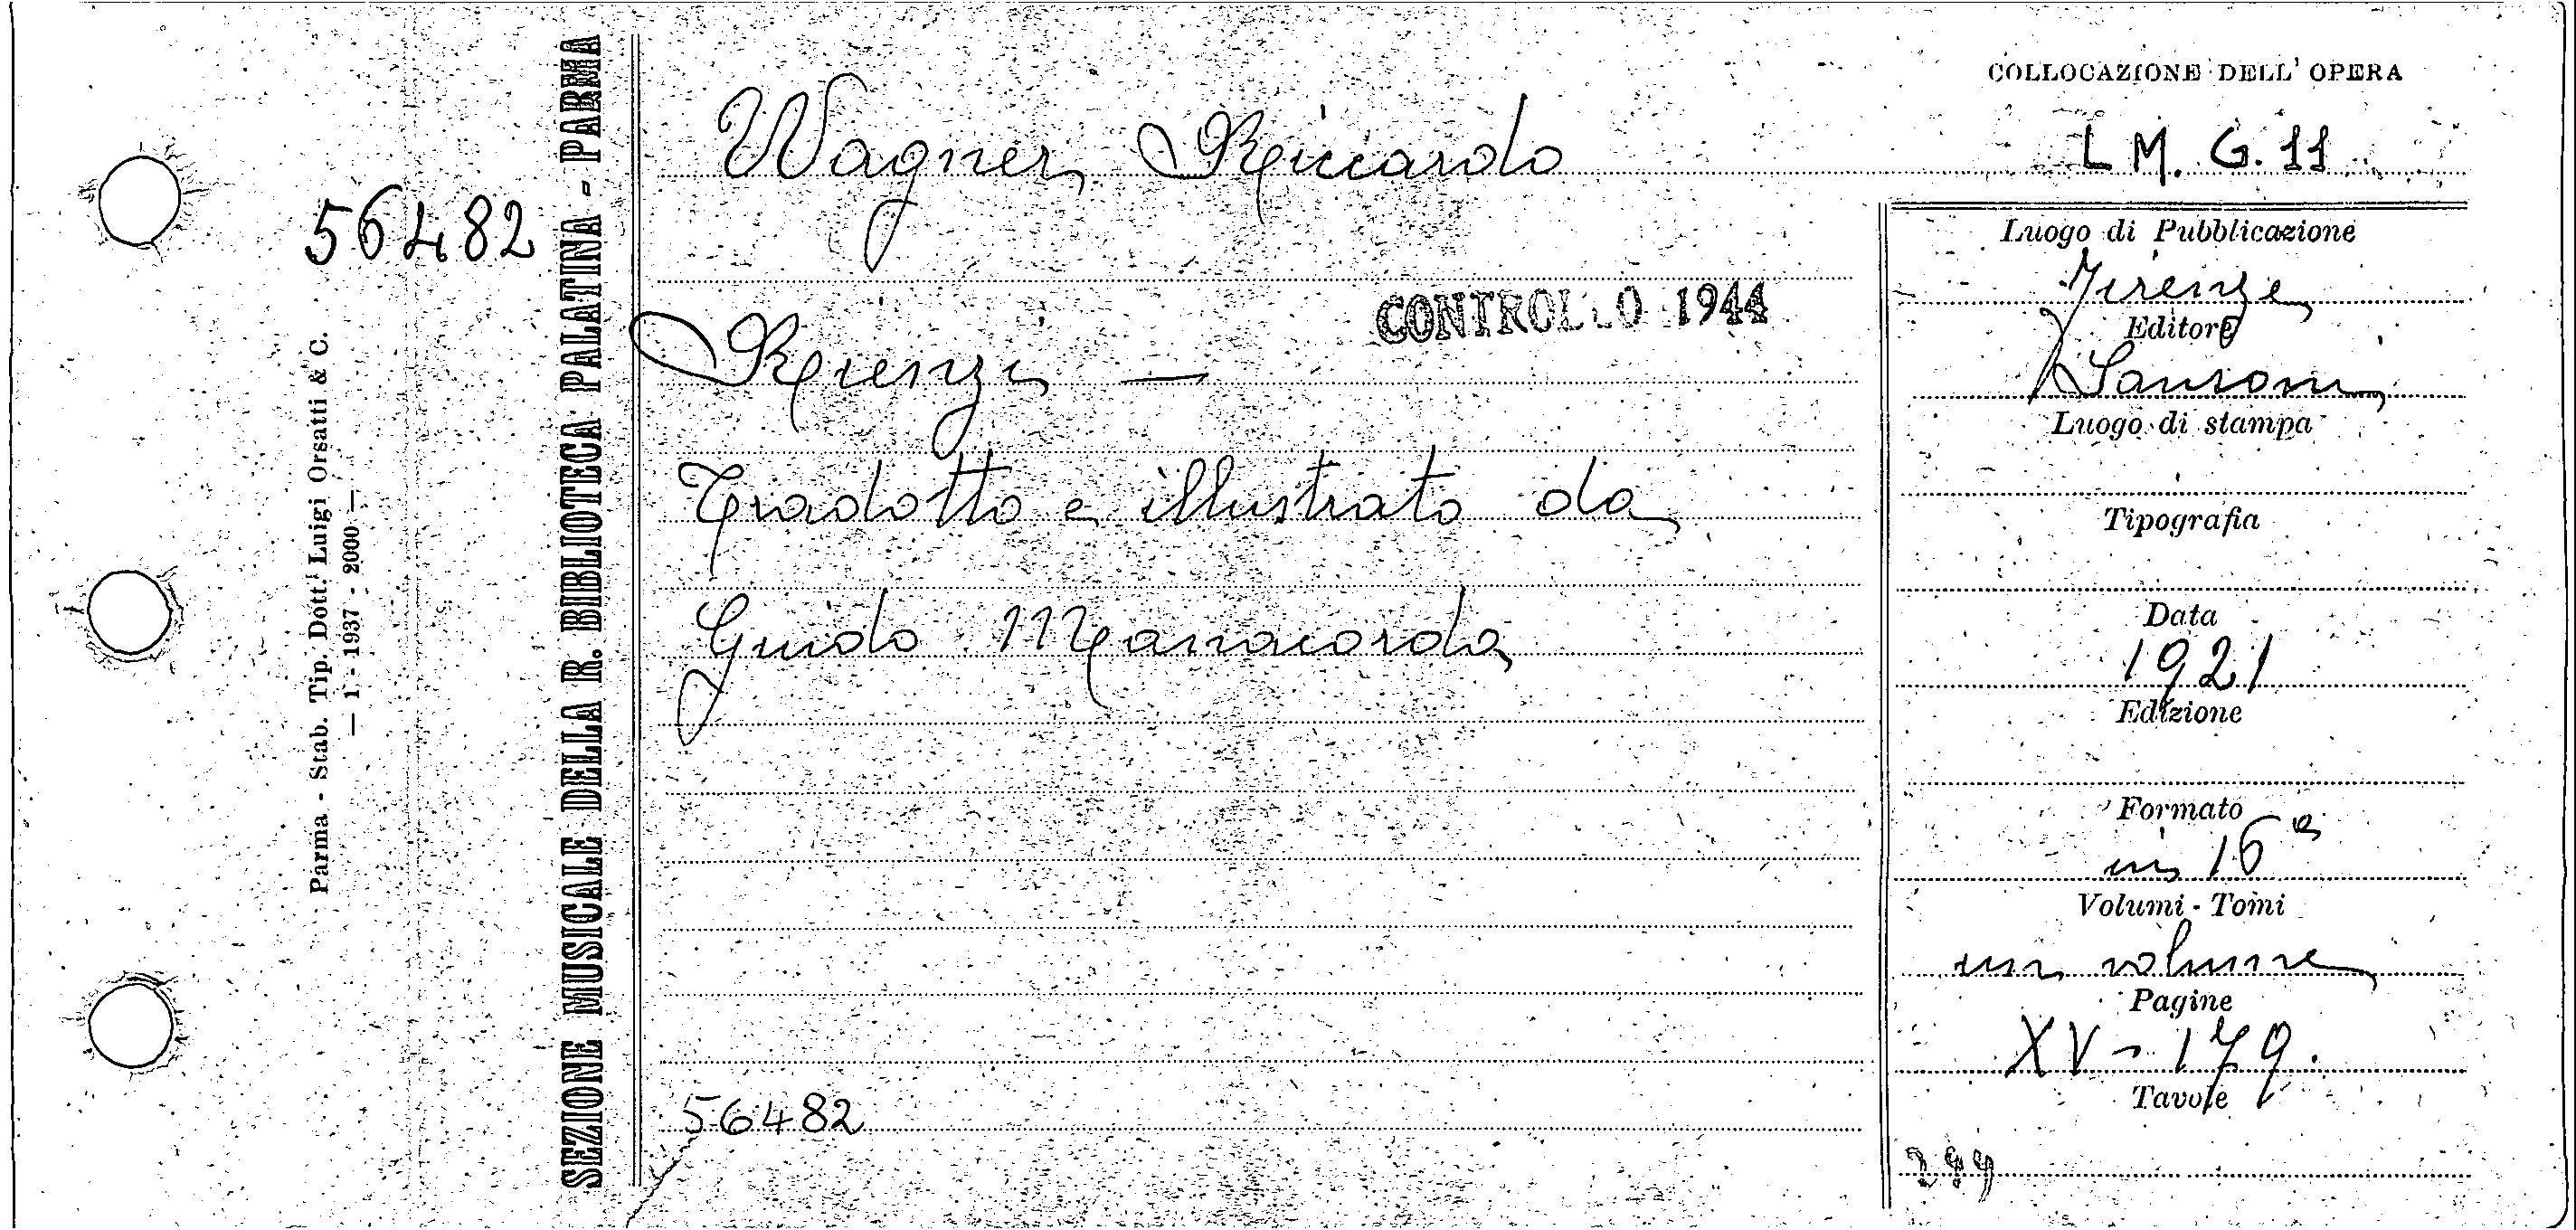 COLLOCAZIONE DELL' OPERA
L M. G. 11
56482
Parma - Stab. Tip. Dott. Luigi Orsatti & C.
— 1 - 1937 - 2000 —
SEZIONE MUSICALE DELLA R. BIBLIOTECA PALATINA - PARMA
Wagner Riccardo
CONTROLLO 1944
Rienzi —
Tradotto e illustrato da
Guido Manacorda
56482
Luogo di Pubblicazione
Firenze
Editore
Sansoni
Luogo di stampa
Tipografia
Data
1921
Edizione
Formato
in 16°
Volumi - Tomi
un volume
Pagine
XV - 179.
Tavole